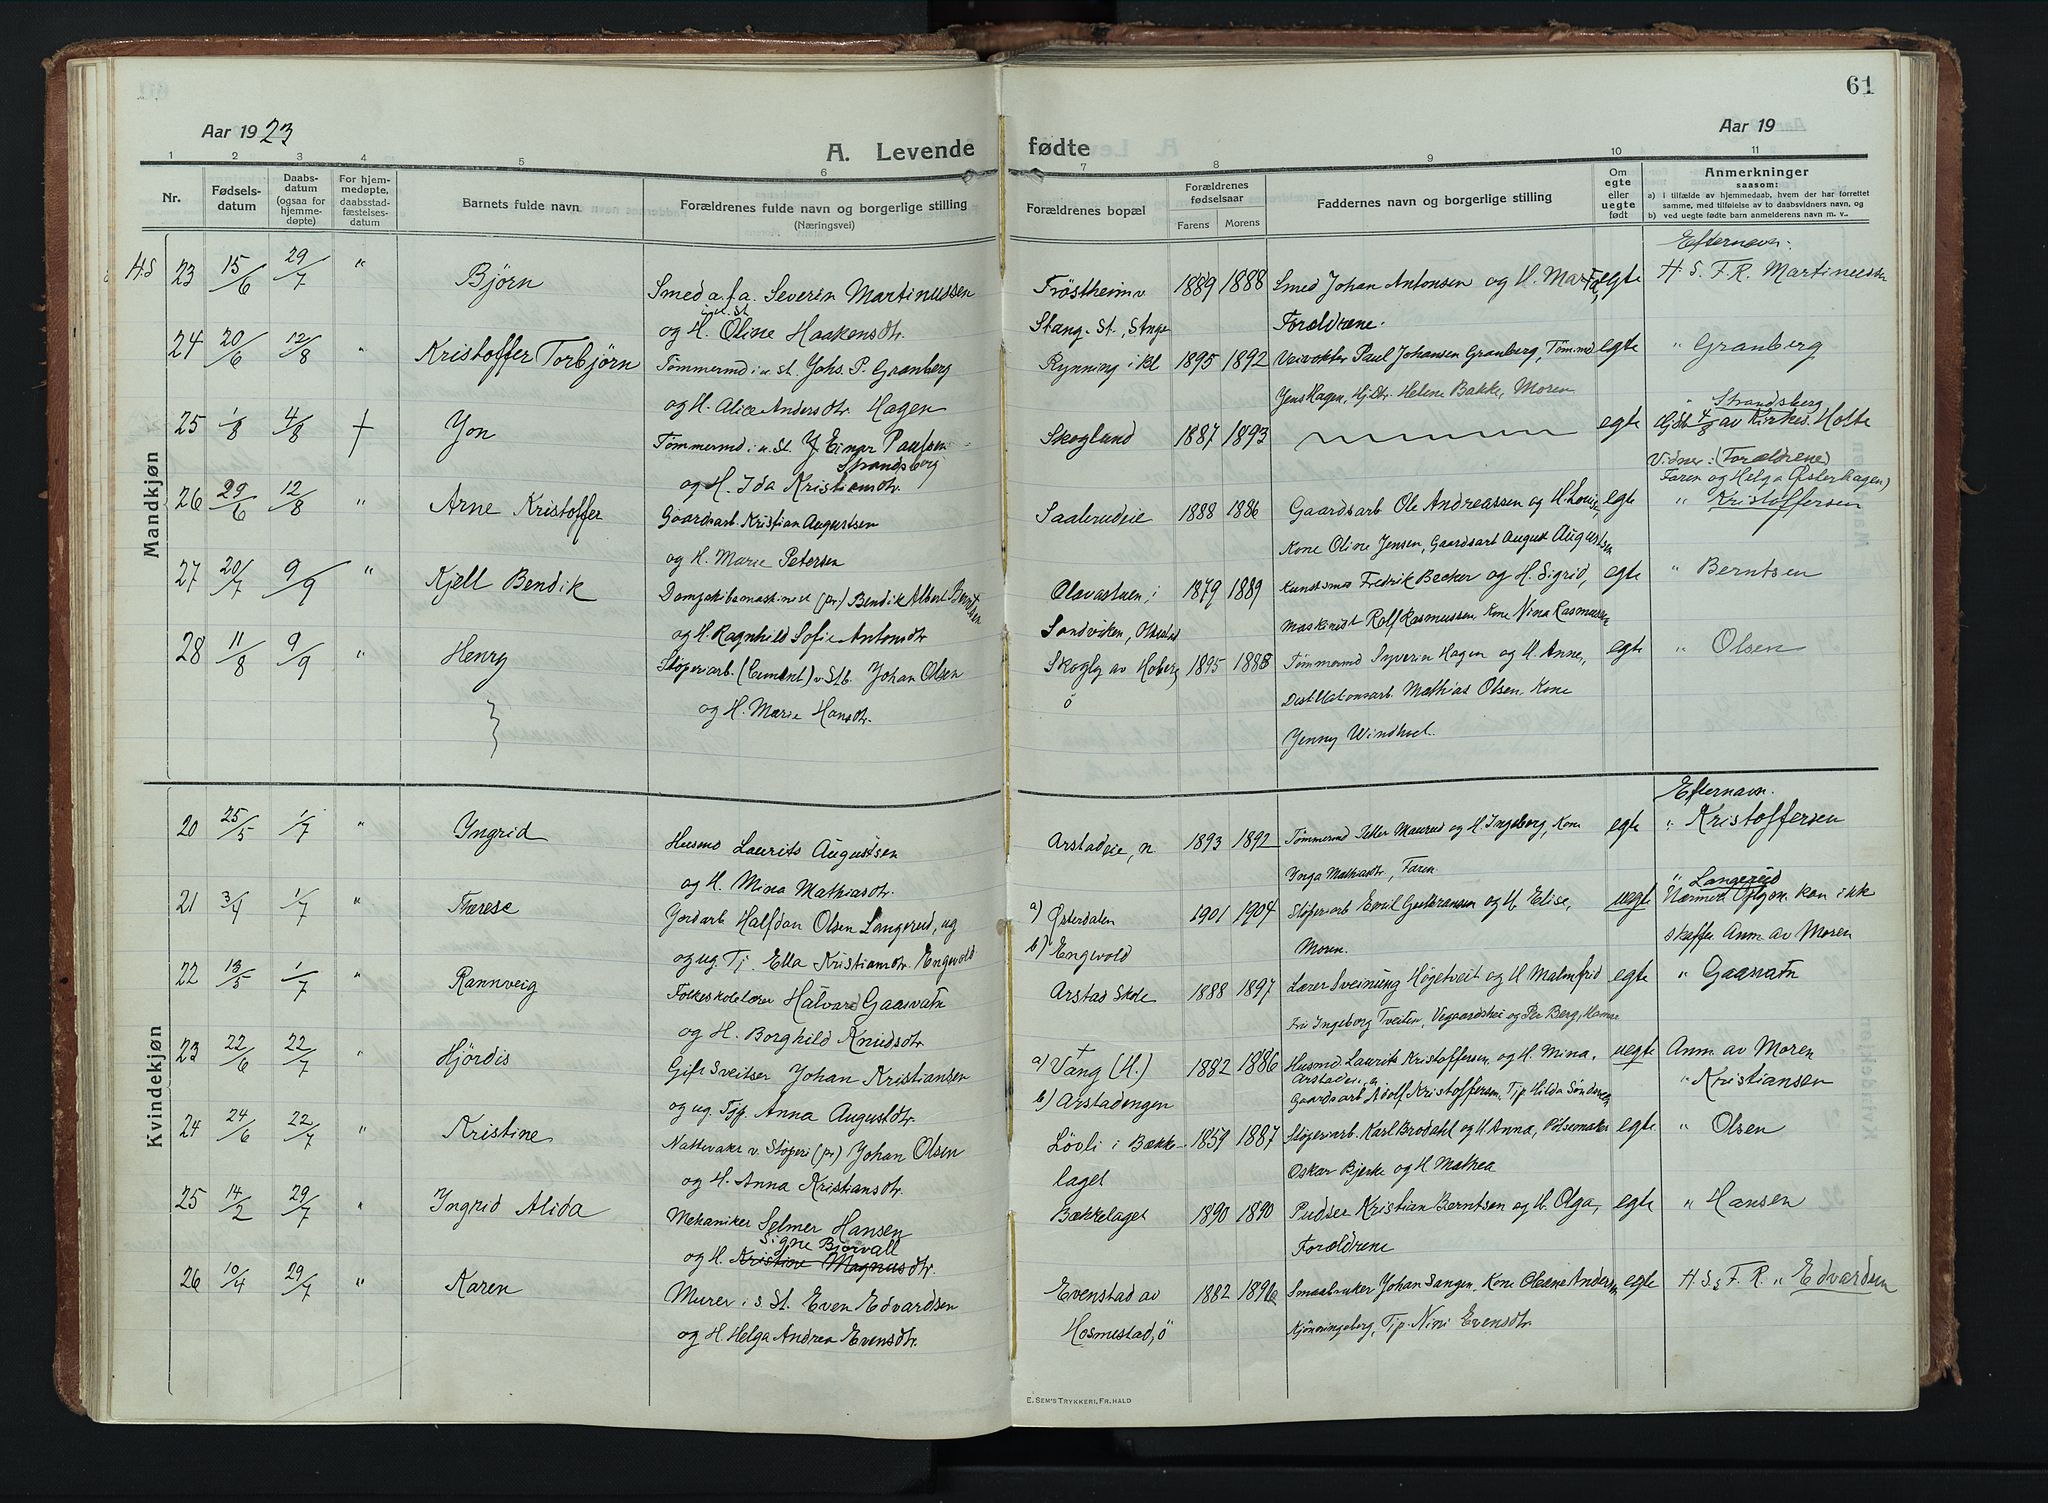 61
Aar 1923
Aar 19
A. Levende fødte
1 2 3 4 5 6 7 8 9 10 11
Nr.
Fødsels-
datum
Daabs-
datum
(ogsaa for
hjemme-
døpte)
For hjem-
medøpte,
daabsstad-
fæstelses-
datum
Barnets fulde navn
Forældrenes fulde navn og borgerlige stilling
(Næringsvei)
Forældrenes bopæl
Forældrenes
fødselsaar
Farens Morens
Faddernes navn og borgerlige stilling
Om
egte
eller
uegte
født
Anmerkninger
saasom:
a) i tilfælde av hjemmedaab, hvem der har forrettet
samme, med tilføielse av to daabsvidners navn, og
b) ved uegte fødte barn anmelderens navn m. v..
Mandkjøn
Efternavn.
H.S 23 15/6 29/7 " Bjørn Smed a.f.a. Severin Martinussen Frøstheim v 1889 1888 Smed Johan Antonsen og H. Martha, egte H. S. F. R. Martinussen
og H. Oline Haakensdtr. Stang. St., Stange Forældrene.
24 20/6 12/8 " Kristoffer Torbjørn Tømmermd i u. St. Johs. P. Granberg Rynning i kl 1895 1892 Veivokter Paul Johansen Granberg, Tømmermd egte " Granberg
og H. Alice Andersdtr. Hagen Jens Hagen, Hjdtr. Helene Bakke, Moren
25 1/8 4/8 + Jon Tømmermd i u. St. Einar Paulsen Strandsberg Skoglund 1887 1893 egte " Strandsberg
og H. Ida Kristiansdtr. Hjdbt 4/8 av Kirkes. Holte
Vidner: (Forældrene)
Faren og Helga Østerhagen)
26 29/6 12/8 " Arne Kristoffer Gaardsarb. Kristian Augustsen Saalerudeie 1888 1886 Gaardsarb Ole Andreassen og H. Louise, egte " Kristoffersen
og H. Marie Petersen Kone Oline Jensen, Gaardsarb August Augustsen
27 20/7 9/9 " Kjell Bendik Dampskibsmaskinist (pr.) Bendik Albert Berntsen Olavastuen, i 1879 1889 Kunstsmed Fredrik Becker og H. Sigrid, egte " Berntsen
og H. Ragnhild Sofie Antonsdtr Sandviken, Ottestad Maskinist Rolf Rasmussen, Kone Nina Rasmussen
28 11/8 9/9 " Henry Støperiarb. (Cement) v. Stb. Johan Olsen Skogly av Hoberg 1895 1888 Tømmermd Syverin Hagen og H. Anne, egte " Olsen
og H. Marie Hansdtr. ø Destillationsarb. Mathias Olsen, Kone
Jenny Windhoel.
Kvindekjøn
Efternavn.
20 25/5 1/7 " Yngrid Husmd Laurits Augustsen Arstadeie, n. 1893 1892 Tømmermd Peller Maurud og H. Ingeborg, Kone egte " Kristoffersen
og H. Mina Mathiasdtr. Ynga Mathiasdtr, Faren.
21 3/4 1/7 " Therese Gardarb Halfdan Olsen Langerud, ug a) Østerdalen 1901 1904 Støperiarb Emil Gulbransen og H. Elise, uegte " Langerud
og ug. Tj. Ella Kristiansdtr. Engevold b) Engevold Moren. Nærmed Oplysn. kan ikke
skaffes. Anm. av Moren
22 13/5 1/7 " Rannveig Folkeskolelærer Halvard Gaasvatn Arstad Skole 1888 1897 Lærer Sveinung Høgetveit og H. Malmfrid egte " Gaasvatn
og H. Borghild Knudsdtr. Fru Ingeborg Tveiten, Vegaardshei og Per Berg, Hamar
23 22/6 22/7 " Hjördis Gift Sveitser Johan Kristiansen a) Vang (H.) 1882 1886 Husmd Laurits Kristoffersen og H. Mina, uegte Anm. av Moren
og ug. Tjp. Anna Augustdtr. b) Arstadengen Arstadeie n Gaardsarb Adolf Kristoffersen, Tjp Hilda " Kristiansen
24 24/6 22/7 " Kristine Nattevakt v. Støperi (pr.) Johan Olsen Løvli i Bække- 1859 1887 Støperiarb. Karl Brodahl og H. Anna, Pølsemaker egte " Olsen
og H. Anna Kristiansdtr. laget Oskar Bjerke og H. Mathea
25 14/2 29/7 " Yngrid Alida Mekaniker Selmer Hansen Bækkelaget 1890 1890 Pudser Kristian Berntsen og H. Olga, egte " Hansen
Signe Bjørvall
og H. Kristine Magnusdtr. Forældrene
26 10/4 29/7 " Karen Murer i s. St. Even Edvardsen Evenstad av 1882 1896 Smaabruker Johan Sangen, Kone Olene Andersen egte H. S. F. R. " Edvardsen
og H. Helga Andrea Evensdtr. Hosmestad, ø Kjønningsberg, Tjp. Nini Evensdtr.
E. SEM'S TRYKKERI, FR. HALD